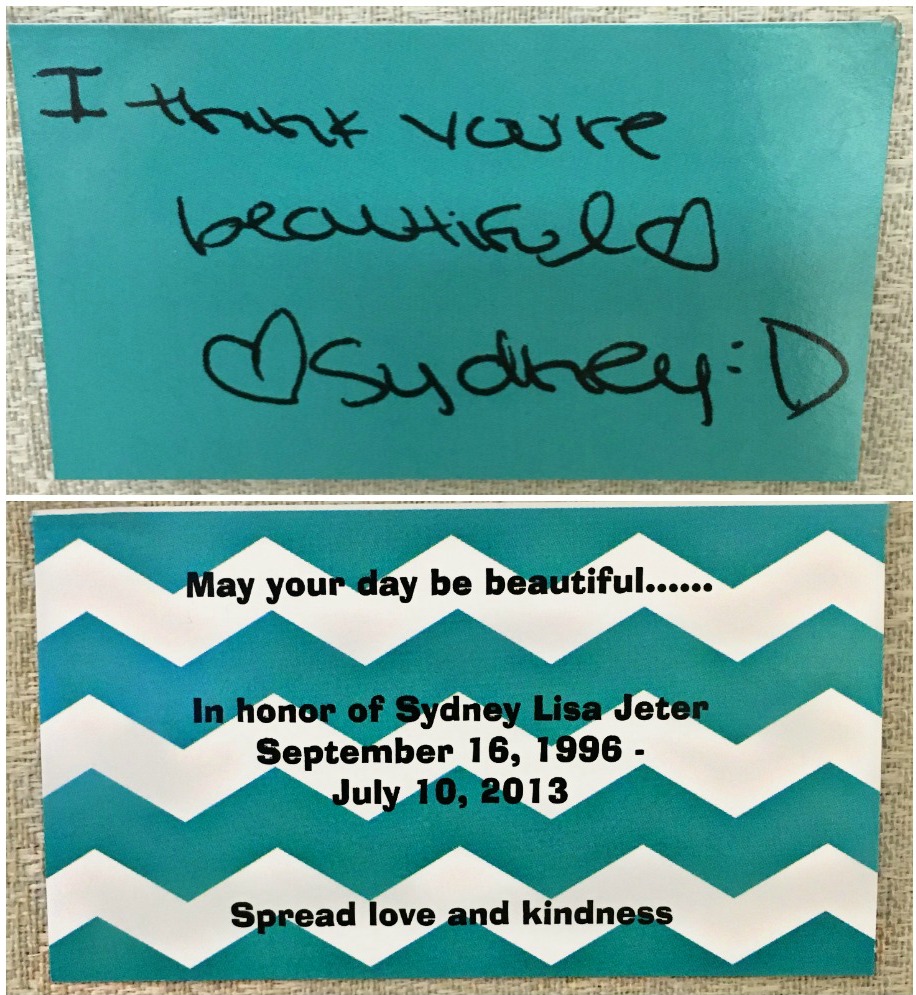 I think you're
beautiful♡
♡Sydney:D
May your day be beautiful......
In honor of Sydney Lisa Jeter
September 16, 1996 -
July 10, 2013
Spread love and kindness